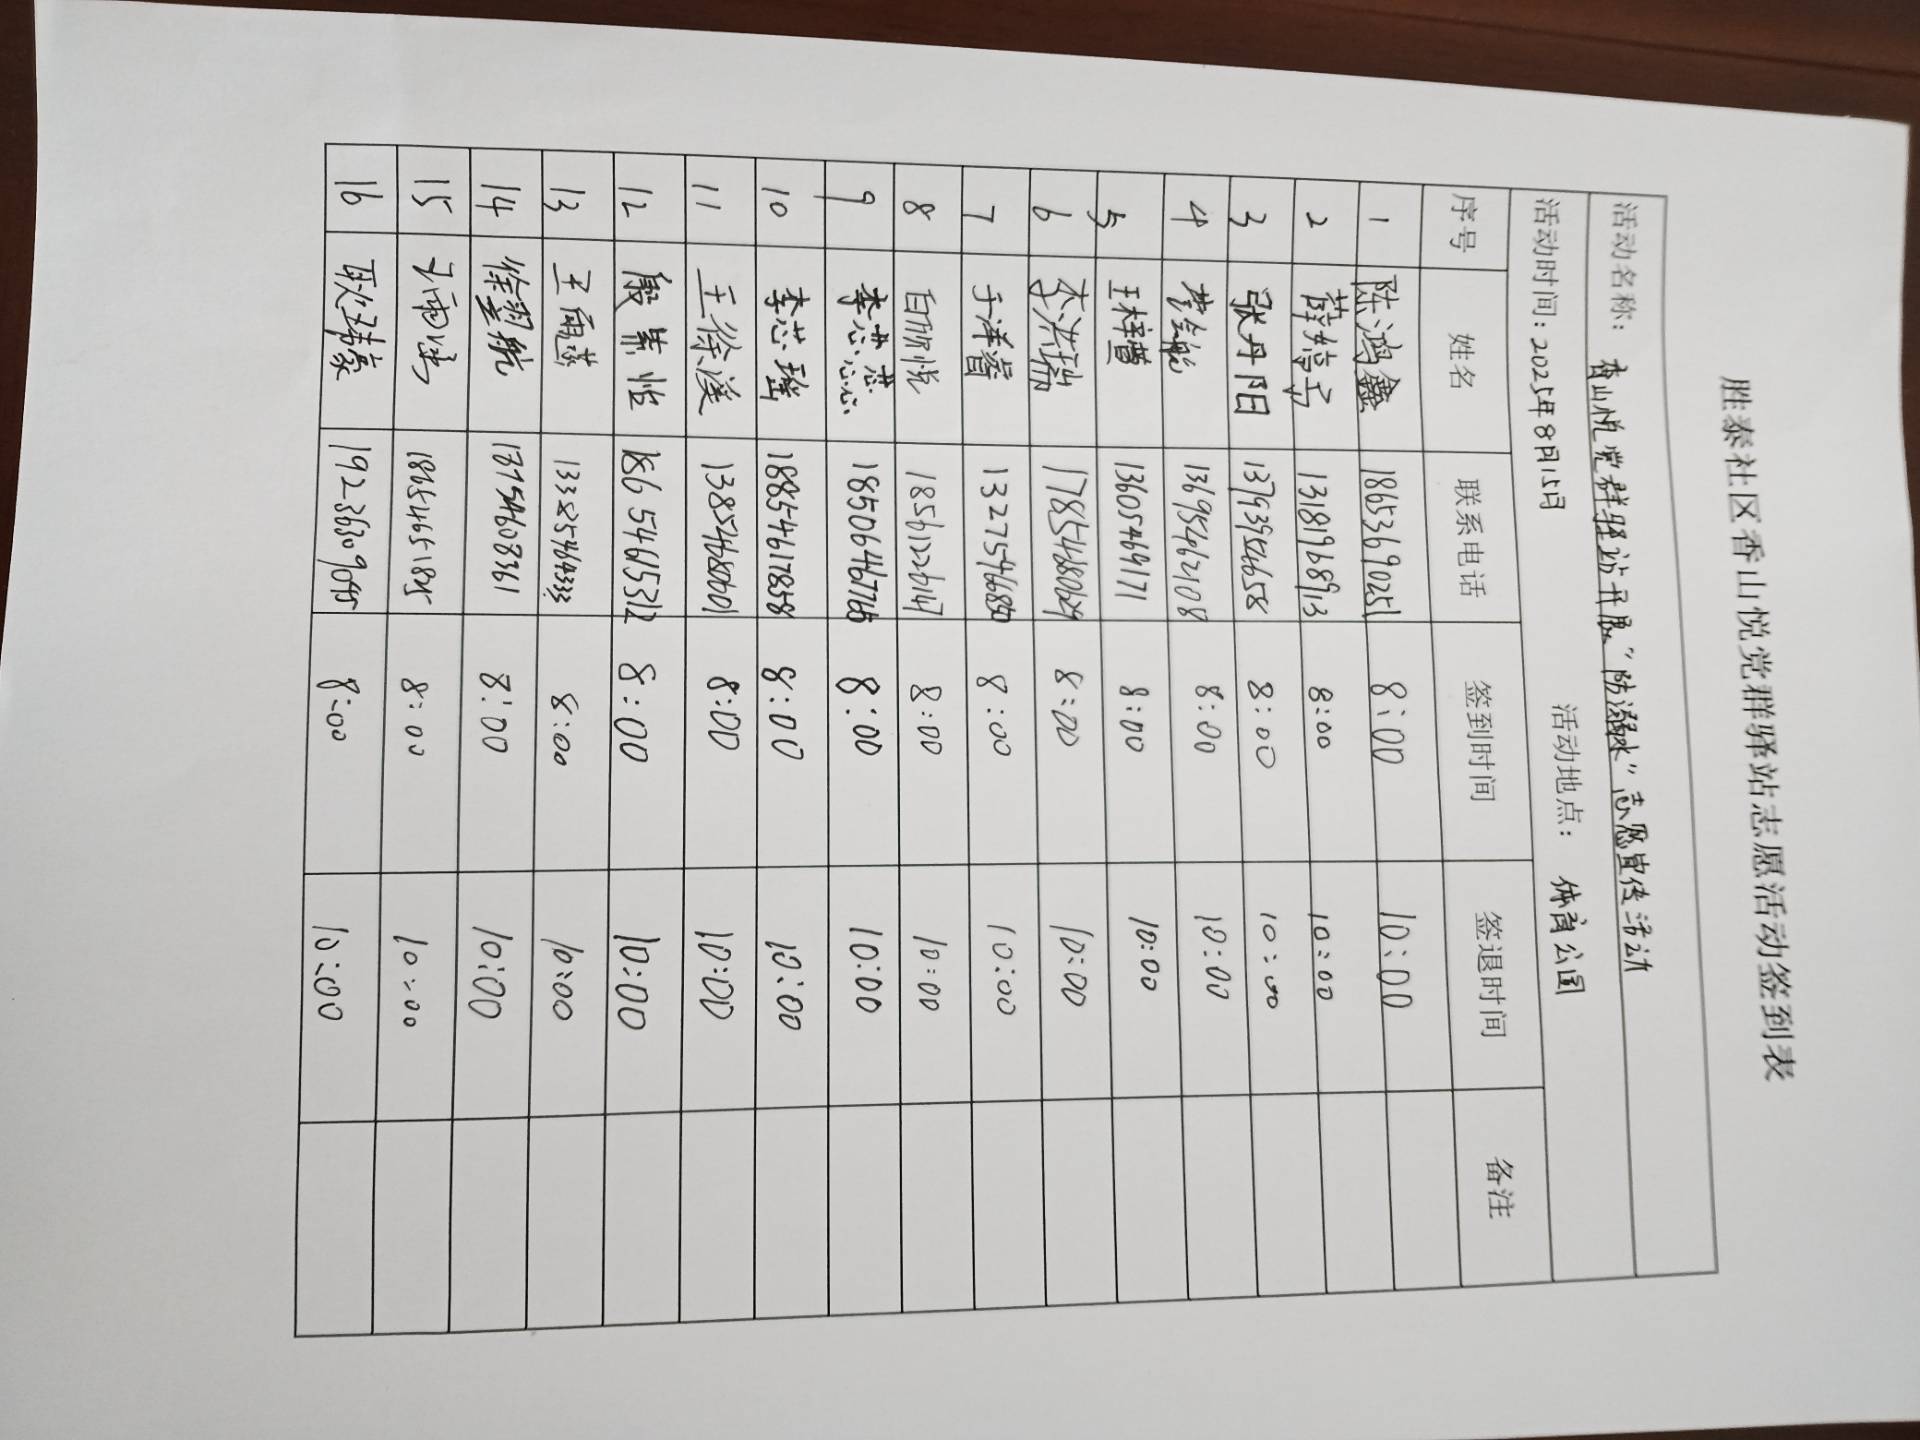 胜泰社区香山悦党群驿站志愿活动签到表
活动名称：香山悦党群驿站开展“防溺水”志愿宣传活动
活动时间：2025年8月15日 活动地点：体育公园
序号 姓名 联系电话 签到时间 签退时间 备注
1 陈鸿鑫 18653690251 8:00 10:00
2 薛婷予 13181968913 8:00 10:00
3 张丹阳 13793954658 8:00 10:00
4 13695462108 8:00 10:00
5 王梓萱 13605469171 8:00 10:00
6 17854680629 8:00 10:00
7 于洋睿 13275466850 8:00 10:00
8 白欣悦 18561226147 8:00 10:00
9 8:00 10:00
10 李芯瑶 18854617858 8:00 10:00
11 王徐溪 13854680601 8:00 10:00
12 18654615312 8:00 10:00
13 王雨燕 13325464333 8:00 10:00
14 徐翌航 17754608361 8:00 10:00
15 18654651825 8:00 10:00
16 8:00 10:00